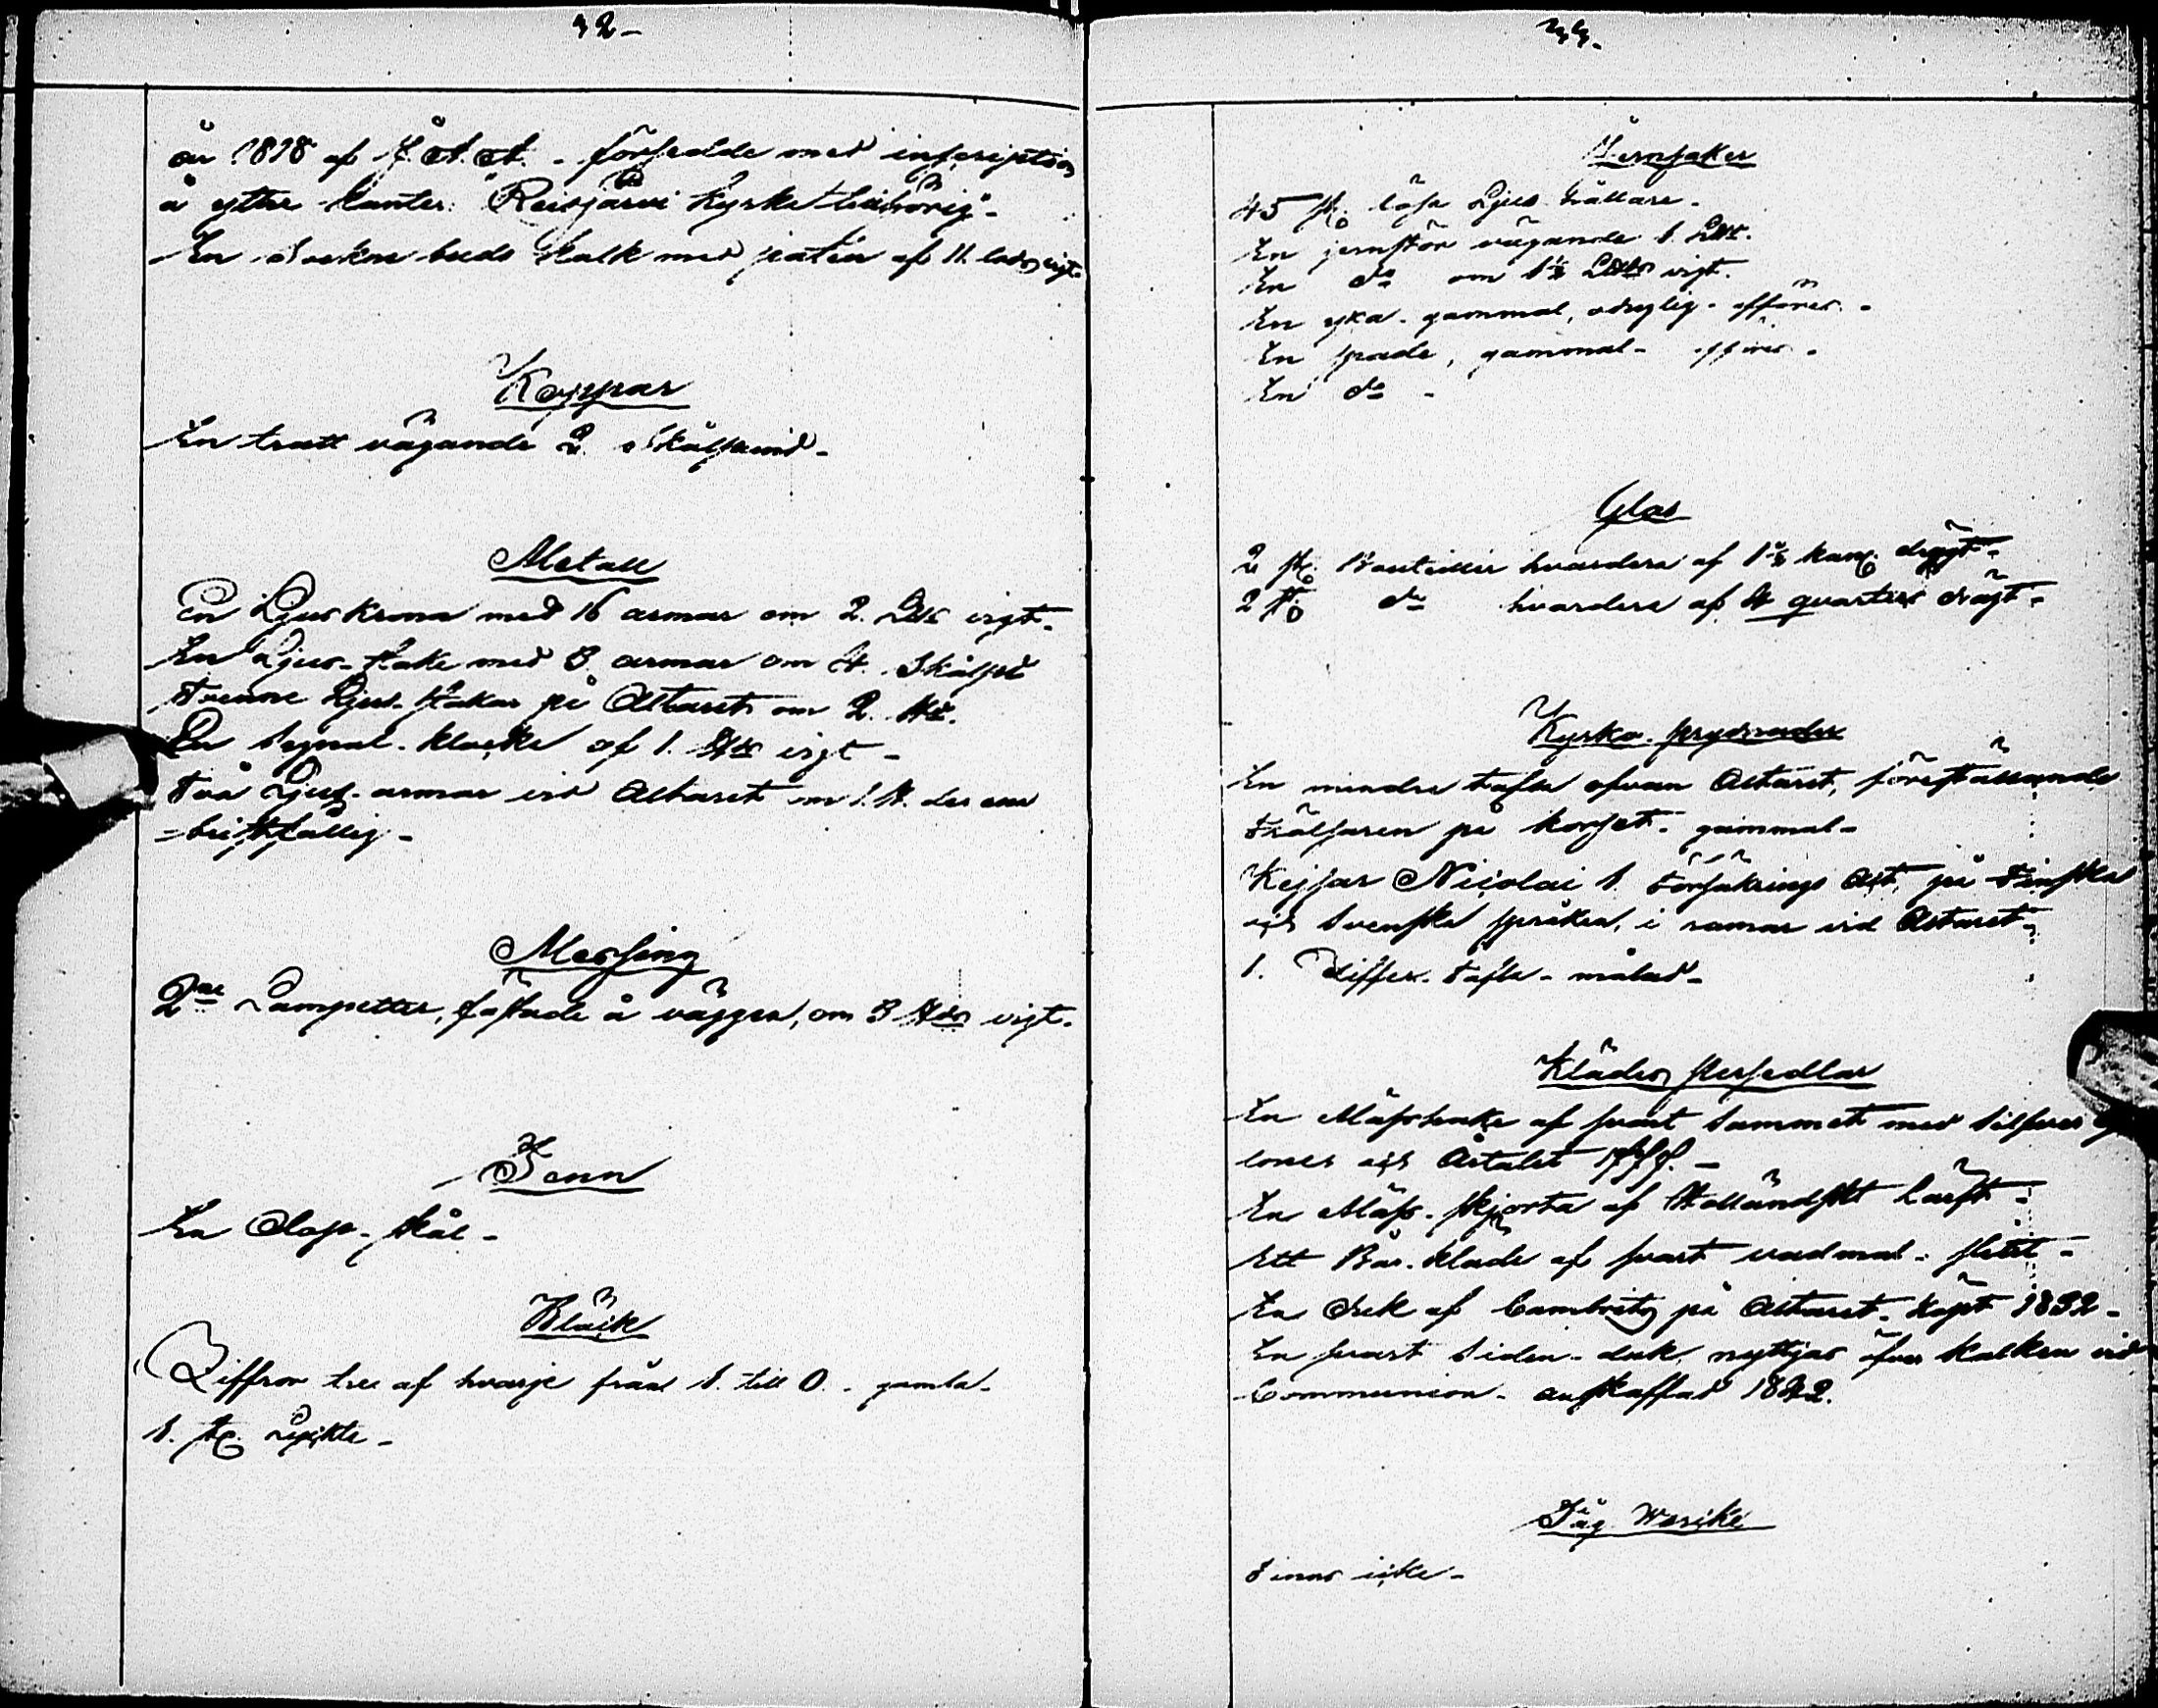 42-
år 1818 af f. A. A. - försedde med inscription
å yttre kanten: "Reisjärvi Kyrka tillhörig".
En Sockne buds Kalk med paten af 11. lods vigt
Koppar
En tratt vägande 2. Skålpund -
Metall
En Ljus krona med 16 armar om 2. L℔ vigt.
En Ljus-stake med 3. armar om 4. Skålpd
Tvenne Ljus-stakar på Altaret om 2. ℔.
En Signal-klocka af 1. L℔ vigt -
Två Ljus-armar vid Altaret om 1. ℔. den ena
bristfällig -
Messing
2ne Lampetter, fästade å väggen, om 3 ℔ds vigt.
Tenn
En Dop-skål -
Bläck
Ziffror tre af hvarje från 1. till 0. - gamla -
1. st.
44.
Jernsaker
45 st. lösa Ljus hållare.
En jernstör vägande 1. L℔.
En do om 1½ L℔ds vigt.
En yxa - gammal, oduglig - afföres. -
En spade, gammal - afföres.
En do -
Glas
2 st. Bouteiller hvardera af 1½ kans drygt -
2 st. do hvardera af 4 quarters drygt -
Kyrko-prydnader
En mindre tafla ofvan Altaret, föreställande
Frälsaren på korset - gammal -
Kejsar Nicolai 1. Försäkrings Act, på Finska
och Svenska språken, i ramar vid Altaret -
1. Ziffer-tafla - målad -
Kläder persedlar
En Mässhake af svart Sammet med Silfver
och Årtalet
En Mäss-skjorta af Holländskt Lärft -
Ett Bår-kläde af svart vadmal - slitet -
En Duk af Cambrits på Altaret - köpt 1832 -
En svart Siden-duk, nyttjas öfver kalken vid
Communion - anskaffad 1842.
Säg. Wericke
Finns icke -